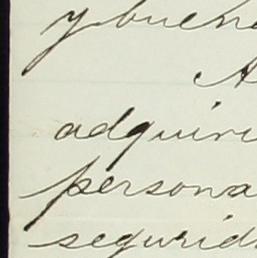 y buen
A
adquiri
persona
segurid